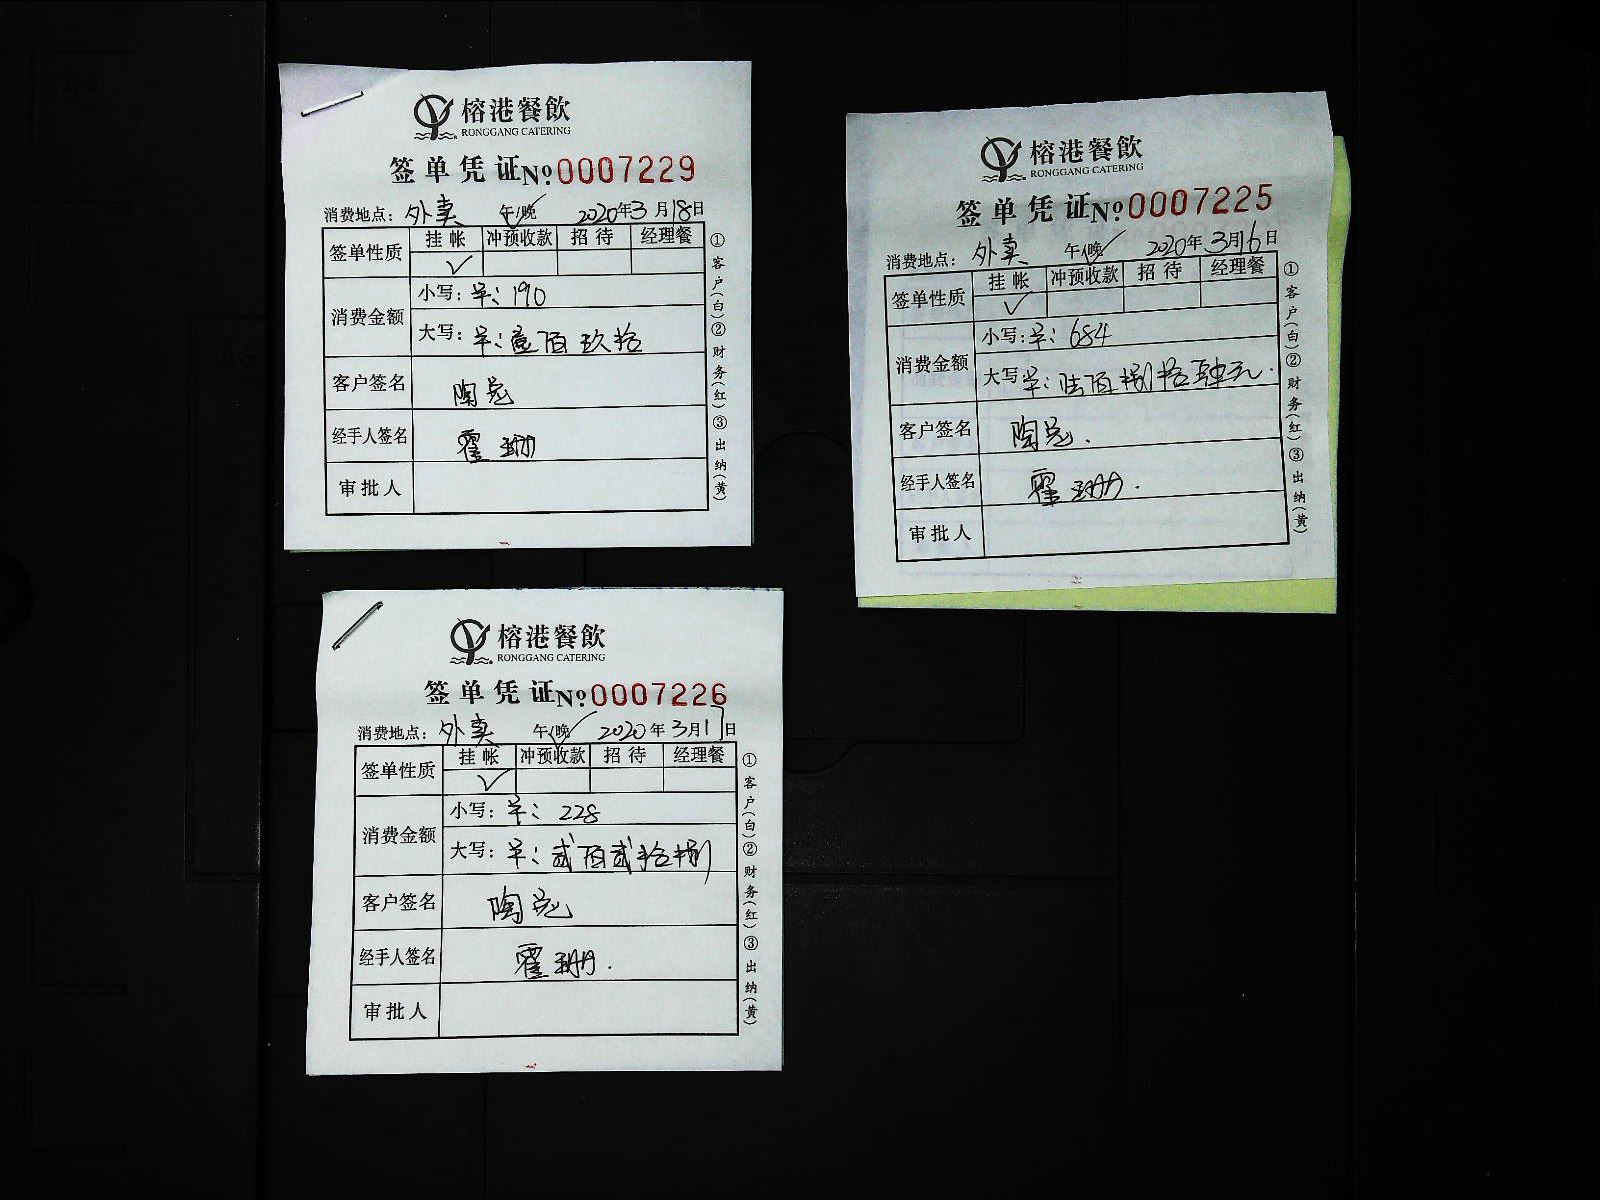 榕港餐飲
RONGGANG CATERING
签单凭证№0007229
消费地点：外卖 午/晚 2020年3月18日
签单性质 挂帐 冲预收款 招待 经理餐
✓
消费金额 小写：羊：190
大写：羊：壹佰玖拾
客户签名 陶
经手人签名 霍珊
审批人
①客户(白)②财务(红)③出纳(黄)
榕港餐飲
RONGGANG CATERING
签单凭证№0007225
消费地点：外卖 午/晚 2020年3月16日
签单性质 挂帐 冲预收款 招待 经理餐
✓
消费金额 小写：羊：684
大写 羊：陆佰捌拾肆元.
客户签名 陶
经手人签名 霍珊.
审批人
①客户(白)②财务(红)③出纳(黄)
榕港餐飲
RONGGANG CATERING
签单凭证№0007226
消费地点：外卖 午/晚 2020年3月17日
签单性质 挂帐 冲预收款 招待 经理餐
✓
消费金额 小写：羊：228
大写：羊：贰佰贰拾捌
客户签名 陶
经手人签名 霍珊.
审批人
①客户(白)②财务(红)③出纳(黄)